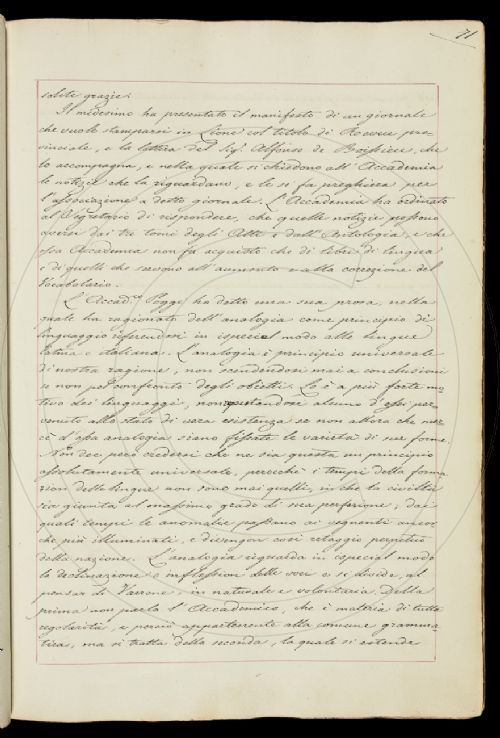 71
solite grazie.
Il medesimo ha presentato il manifesto di un giornale
che vuole stamparsi in Lione col titolo di Revue pro
vinciale, e la lettera del Sig. Alfonso de Boissieu, che
lo accompagna, e nella quale si chiedono all'Accademia
le notizie che la riguardano, e le si fa preghiera per
l'associazione a detto giornale. L'Accademia ha ordinato
al Segretario di rispondere, che quelle notizie possono
aversi dai tre tomi degli Atti e dall'Antologia, e che
essa Accademia non fa acquisto che di libri di lingua
e di quelli che servono all'aumento e alla correzione del
Vocabolario.
L'Accad.co Poggi ha detto una sua prosa, nella
quale ha ragionato dell'analogia come principio di
linguaggio riferendosi in ispecial modo alle lingue
latina e italiana. L'analogia è principio universale
di nostra ragione, non scendendosi mai a conclusioni
se non pel confronto degli obietti. Lo è a più forte mo-
tivo dei linguaggi, non reputandosi alcuno d'essi per
venuto allo stato di vera esistenza se non allora che mer
cè d'essa analogia siano fissate le varietà di sue forme.
Non dee però credersi che ne sia questa un principio
assolutamente universale, perocchè i tempi della forma
zion delle lingue non sono mai quelli, in che la civiltà
sia giunta al massimo grado di sua perfezione, dai
quali tempi le anomalie passano ai seguenti ancor
che più illuminati, e divengon così retaggio perpetuo
della nazione. L'analogia riguarda in especial modo
la declinazione e inflession delle voci e si divide, al
pensar di Varrone, in naturale e volontaria. Della
prima non parla l'Accademico, che è materia di tutta
regolarità, e perciò appartenente alla comune gramma-
tica, ma si tratta della seconda, la quale si estende